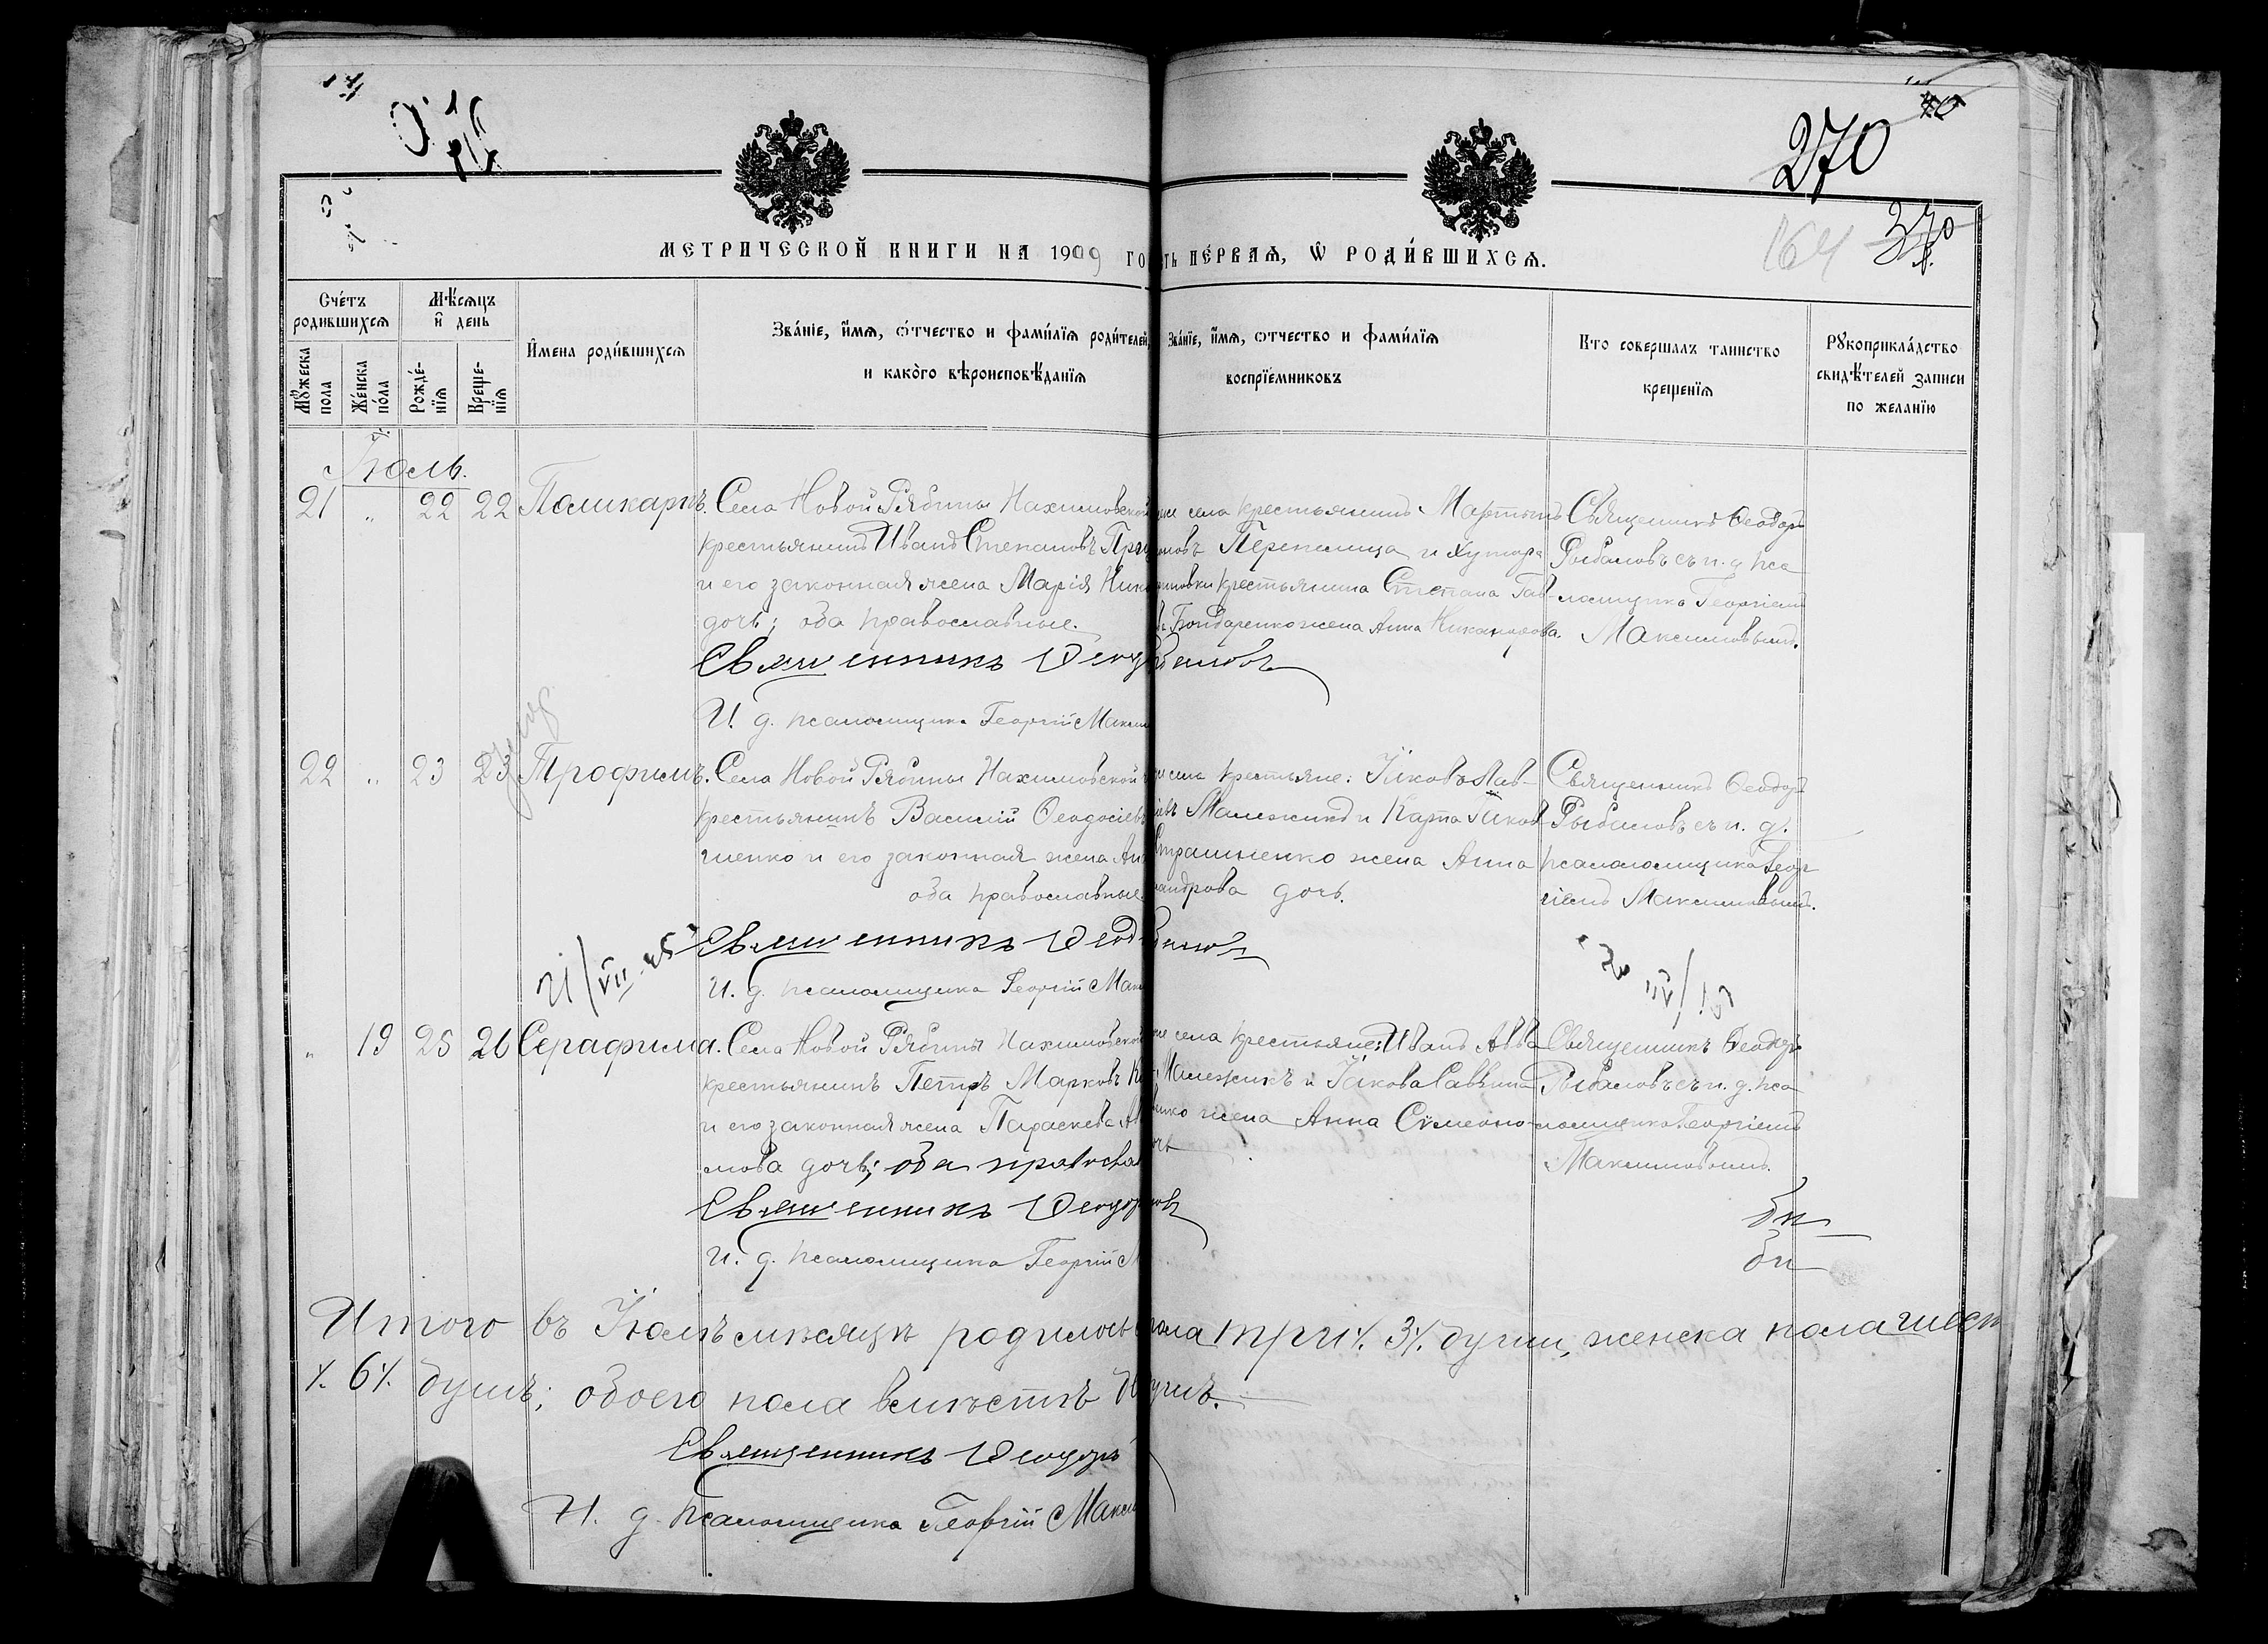 270
370
164
МЕТРИЧЕСКОЙ КНИГИ НА 1909 ГО
ть пе́рвая, Ѡ роди́вшихся.
Сче́тъ родившихся
Мѣ́сяцъ и҆ день
Мꙋжеска пола
Же́нска по́ла
Рожде́нїя
Креще́нїя
И҆мена роди́вшихся
Зва́нїе, и҆мя, ѻ҆тчество и фами́лїя роди́телей,
и како́го вѣроисповѣ́данїя
Зва́нїе, и҆мя, ѻтчество и фами́лїя
воспрїе́мниковъ
Кто совершалъ таинство
крещенїя
Рꙋкоприкла́дство
свидѣ́телей записи
по желанїю
Іюль.
21 " 22 22 Поликарпъ. Села Новой Рябины Нахимовской
крестьянинъ Иванъ Степановъ
и его законная жена Марія
дочь; оба православные.
Священникъ Ѳеодоръ
И. д. псаломщика Георгій
села крестьянинъ Мартынъ
Перепелица и хутора
крестьянина Степана Гав-
Бондаренко жена Анна Никанорова.
Священникъ Ѳеодоръ
Рыбаловъ съ и. д. пса
ломщика Георгіемъ
Максимовымъ.
22 " 23 23 Трофимъ. Села Новой Рябины Нахимовской
крестьянинъ Василій Ѳеодосіевъ
ченко и его законная жена
оба православные.
Священникъ
И. д. псаломщика Георгій
села крестьяне: Іяковъ Сав-
Малежикъ и Карпа Іяков
Страшненко жена Анна
дочь.
Священникъ Ѳеодоръ
Рыбаловъ съ и. д.
псаломщика Геор
гіемъ Максимовымъ.
21/VII-45
" 19 25 26 Серафима. Села Новой Рябины Нахимовской
крестьянинъ Петръ Марковъ
и его законная жена Параскева
мова дочь; оба православ
Священникъ Ѳеодоръ
И. д. псаломщика Георгій
села крестьяне: Иванъ Авва
Малежикъ и Іякова Саввина
жена Анна Сѵмеоно-
Священникъ Ѳеодоръ
Рыбаловъ съ и. д. пса
ломщика Георгіемъ
Максимовымъ.
Итого въ Іюлѣ мѣсяцѣ родилось
пола три ٪ 3 ٪ души, женска пола шест
٪ 6 ٪ душъ; обоего пола вмѣстѣ
душъ.
Священникъ Ѳеодоръ
И. д. псаломщика Георгій